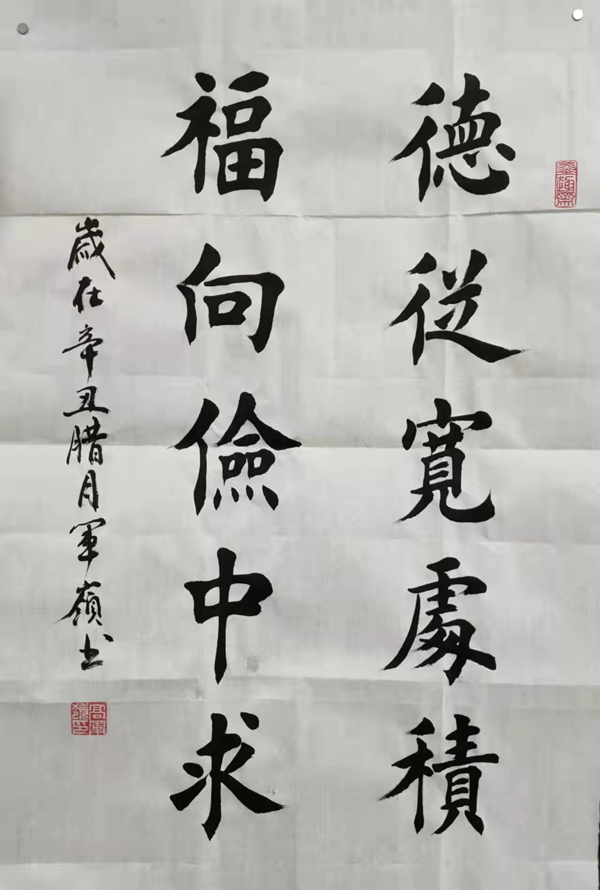 德從寬處積
福向儉中求
歲在辛丑腊月軍嶺书